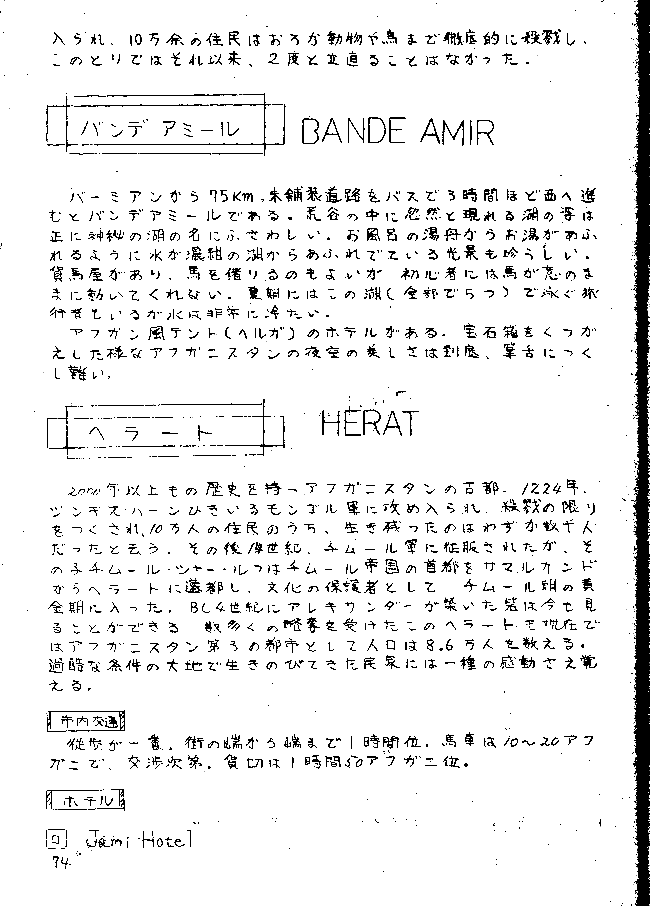 入られ、10万余の住民はおろか動物や鳥まで徹底的に殺戮し、
このとりではそれ以来、2度と立直ることはなかった。
バンデ アミール BANDE AMIR
バーミアンから75Km、未舗装道路をバスで3時間ほど西へ進
むとバンデアミールである。荒谷の中に忽然と現れる湖の姿は
正に神秘の湖の名にふさわしい。お風呂の湯舟からお湯があふ
れるように水が濃紺の湖からあふれでている光景も珍らしい。
貸馬屋があり、馬を借りるのもよいが 初心者には馬が意のま
まに動いてくれない。夏期にはこの湖(全部で5つ)で泳ぐ旅
行者もいるが水は非常に冷たい。
アフガン風テント(ヘルガ)のホテルがある。宝石箱をくつが
えした様なアフガニスタンの夜空の美しさは到底、筆舌につく
し難い。
ヘラート HERAT
2000年以上もの歴史を持つアフガニスタンの古都。1224年、
ジンギスハーンひきいるモンゴル軍に攻め入られ、殺戮の限り
をつくされ、10万人の住民のうち、生き残ったのはわずか数千人
だったと云う。その後14世紀、チムール軍に征服されたが、そ
の子チムール・シャー・ルフはチムール帝国の首都をサマルカンド
からヘラートに遷都し、文化の保護者として チムール朝の黄
金期に入った。BC4世紀にアレキサンダーが築いた砦は今も見
ることができる 数多くの略奪を受けたこのヘラートも現在で
はアフガニスタン第3の都市として人口は8.6万人を数える。
過酷な条件の大地で生きのびてきた民衆には一種の感動さえ覚
える。
市内交通
徒歩が一番。街の端から端まで1時間位。馬車は10〜20アフ
ガニで、交渉次第。貸切は1時間50アフガニ位。
ホテル
Jami Hotel
74